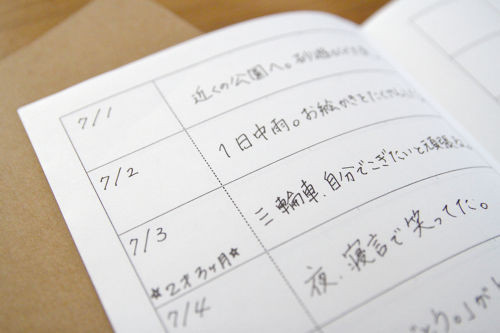 7/1 近くの公園へ。砂遊び
7/2 1日中雨。お絵かきとたくさん
7/3 三輪車、自分でこぎたいと頑張
☆2才3ヶ月☆
7/4 夜、寝言で笑ってた。